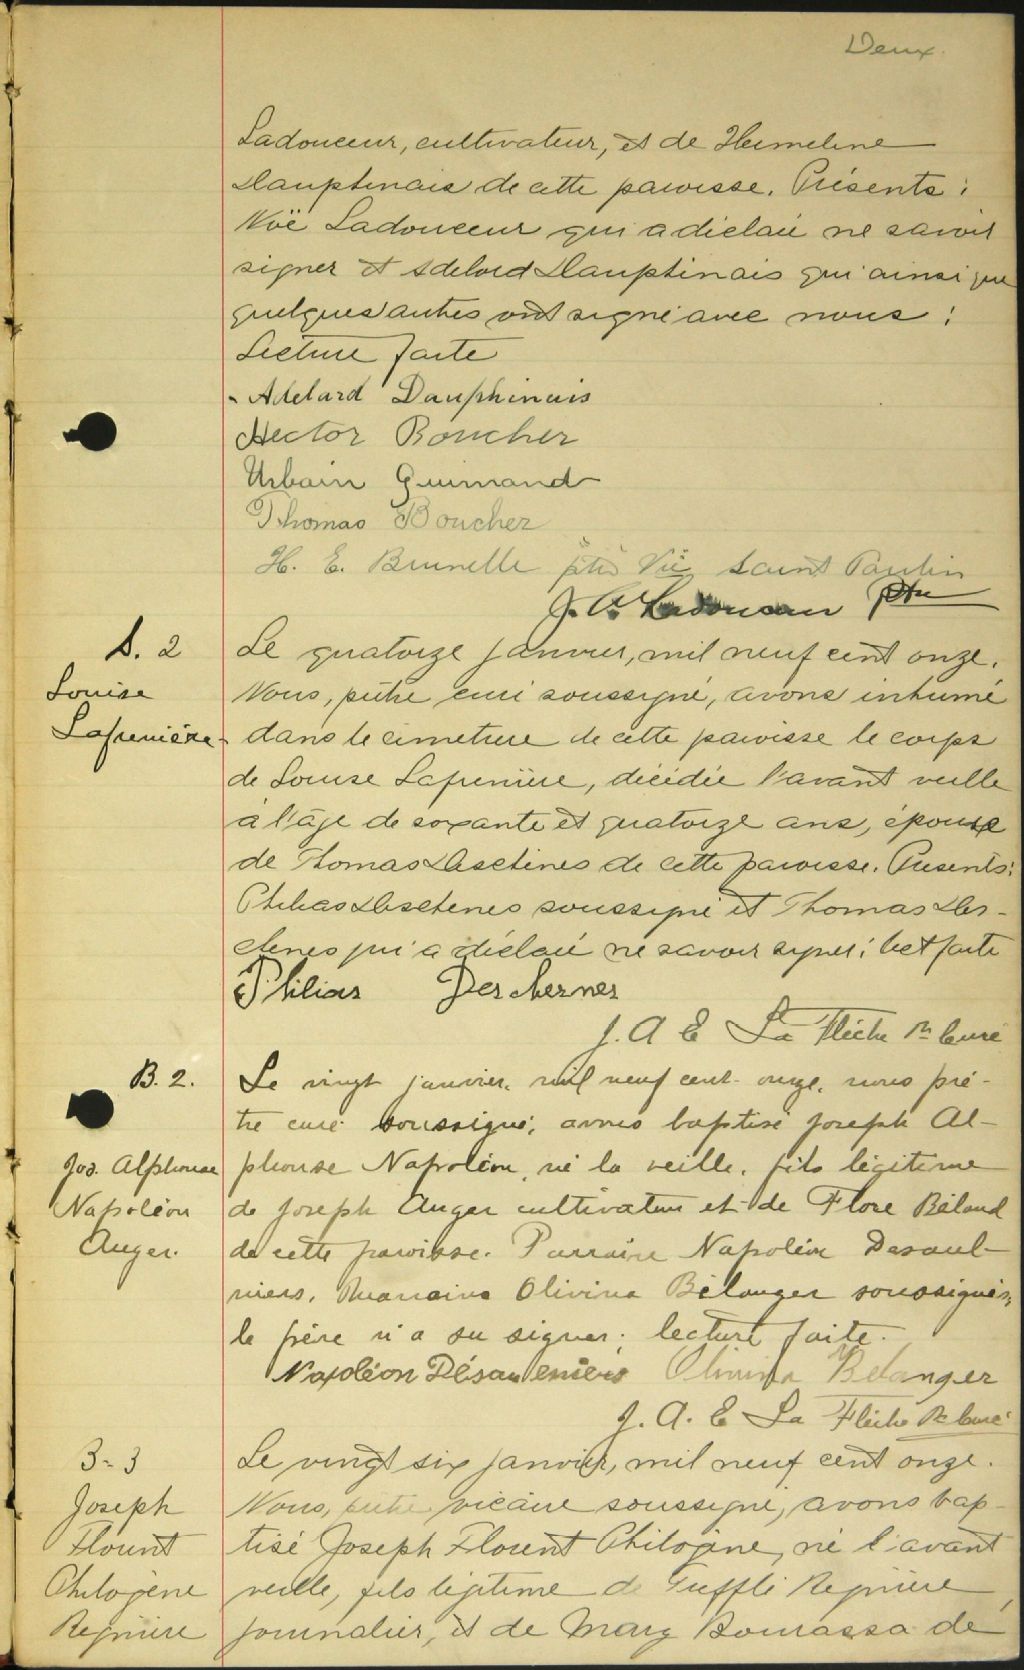 Deux
Ladouceur, cultivateur, et de Hermeline
Dauphinais de cette paroisse. Présents :
Noë Ladouceur qui a déclaré ne savoir
signer et Adelard Dauphinais qui ainsi que
quelques autres ont signé avec nous ;
Lecture faite
Adelard Dauphinais
Hector Boucher
Urbain Guimand
Thomas Boucher
H. E. Brunelle ptre Vic Saint Paulin
J. A. Ladouceur Ptre
S. 2
Louise
Lafrenière
Le quatorze janvier, mil neuf cent onze.
Nous, prêtre curé soussigné, avons inhumé
dans le cimetière de cette paroisse le corps
de Louise Lafrenière, décédée l'avant veille
à l'âge de soixante et quatorze ans, épouse
de Thomas Deschênes de cette paroisse. Présents :
Philias Deschenes soussigné et Thomas Des-
chenes qui a déclaré ne savoir signer ; lect faite
Philias Deschernes
J. A E La Flèche Ptr Curé
B. 2.
Jos. Alphonse
Napoléon
Auger.
Le vingt janvier, mil neuf cent onze, nous prê-
tre curé soussigné, avons baptisé Joseph Al-
phonse Napoléon, né la veille, fils légitime
de Joseph Auger cultivateur et de Flore Béland
de cette paroisse. Parrain Napoléon Desaul-
niers, Marraine Olivina Bélanger soussignés,
le père n'a su signer ; lecture faite.
Napoléon Désauleniers Olivina Belanger
J. A. E La Flèche Ptr Curé
B- 3
Joseph
Florent
Philogène
Rejnière
Le vingt six janvier, mil neuf cent onze.
Nous, prêtre vicaire soussigné, avons bap-
tisé Joseph Florent Philogène, né l'avant
veille, fils légitime de Tufflé Rejnière,
journalier, et de Mary Bourassa de